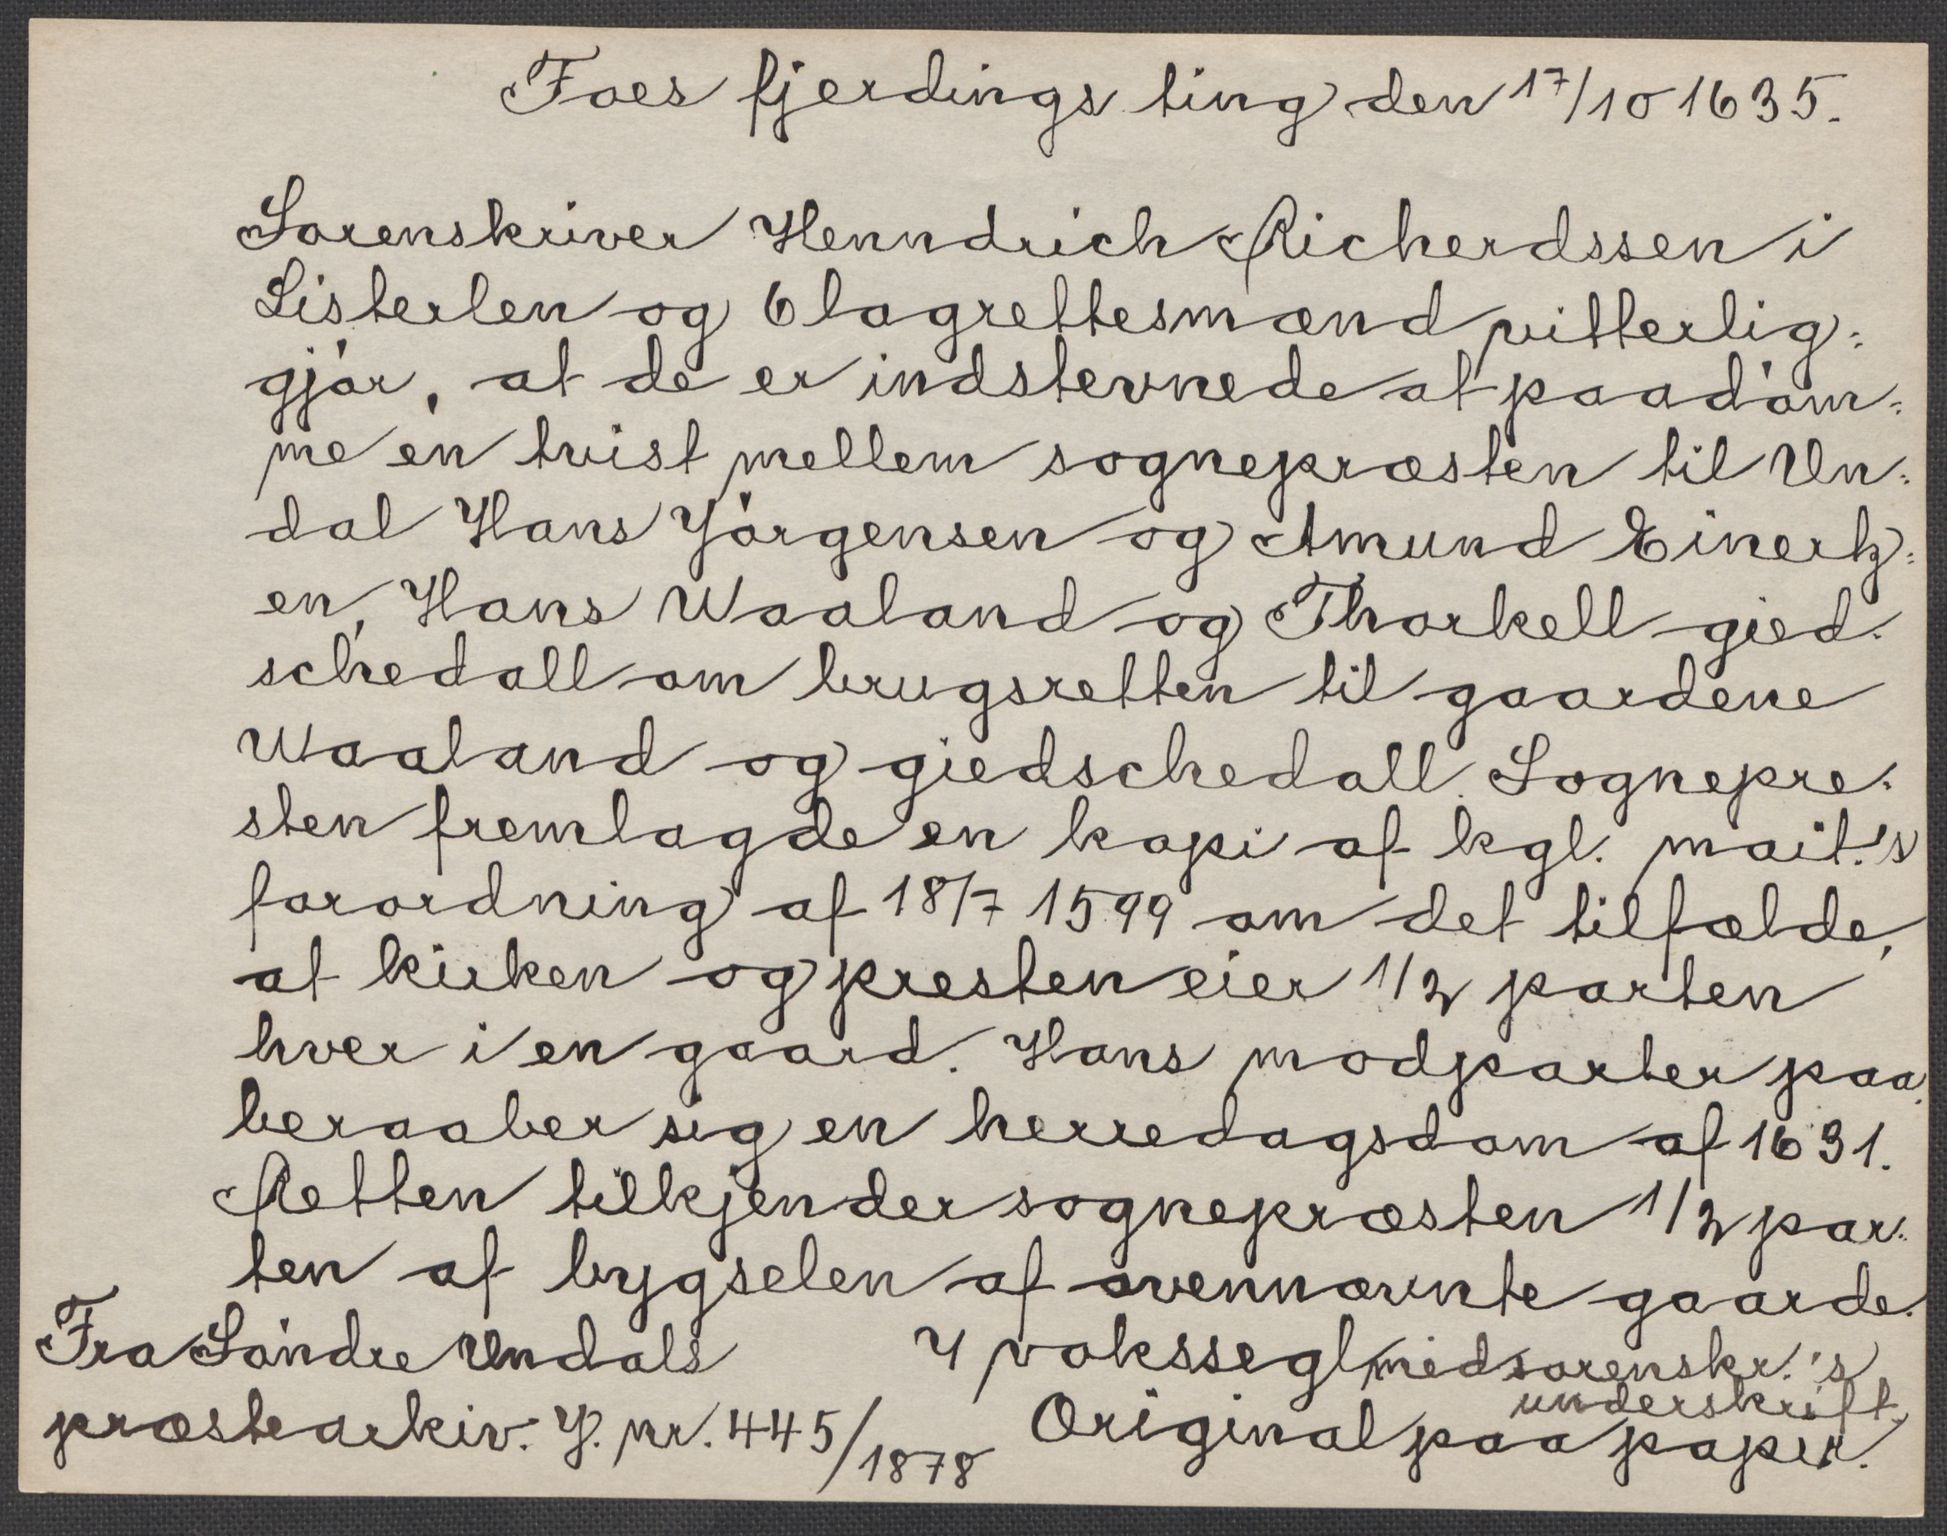 Foes fjerdings ting den 17/10 1635.
Sorenskriver Henndrich Richerdssen i
Listerlen og 6 lagrettesmænd vitterlig:
gjør, at de er indstevnede at paadøm:
me en tvist mellem sognepræsten til Un:
dal Hans Jørgensen og Amund Einertz:
en, Hans Waaland og Thorkell gied:
schedall om brugsretten til gaardene
Waaland og giedschedall. Sognepre:
sten fremlagde en kopi af kgl. mait.'s
forordning af 18/7 1599 om det tilfælde,
at kirken og presten eier 1/2 parten
hver i en gaard. Hans modparter paa:
beraaber sig en herredagsdom af 1631.
Retten tilkjender sognepræsten 1/2 par:
ten af bygselen af ovennævnte gaarde.
Fra Søndre Undals 4 vokssegl med sorenskr.'s
underskrift.
præstearkiv. J. nr. 445/1878 Original paa papir.